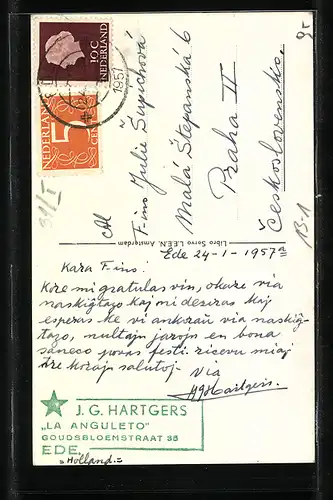 10c
NEDERLAND
1957
NEDERLAND
5
CENT
F-ino Julie Šupichová
Malá Štepanská 6
Praha II
Československo.
31/I
13-1
Libro Servo L.E.E.N. Amsterdam
Ede 24-1-1957a
Kara F-ino.
Kore mi gratulas vin, okaze via
naskiĝtago kaj mi deziras kaj
esperas ke vi ankraŭ via naskiĝ-
tago, multajn jarojn en bona
saneco povas festi. ricevu miaj
tre korajn salutojn.
via
HGHartgers.
J. G. HARTGERS
„LA ANGULETO"
GOUDSBLOEMSTRAAT 35
EDE.
„Holland.=